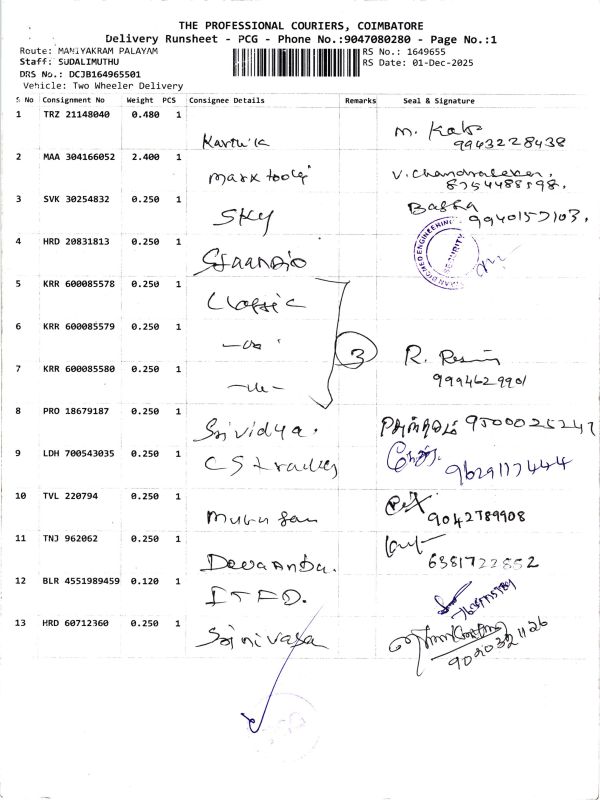 THE PROFESSIONAL COURIERS, COIMBATORE
Delivery Runsheet - PCG - Phone No.:9047080280 - Page No.:1
Route: MANIYAKRAM PALAYAM
RS No.: 1649655
Staff: SUDALIMUTHU
RS Date: 01-Dec-2025
DRS No.: DCJB164965501
Vehicle: Two Wheeler Delivery
S No Consignment No Weight PCS Consignee Details Remarks Seal & Signature
1 TRZ 21148040 0.480 1 Karthik
9943228438
2 MAA 304166052 2.400 1 V. Chandrasekar.
8754488598.
3 SVK 30254832 0.250 1 SKY Basha
9940157103.
4 HRD 20831813 0.250 1
BIOMED ENGINEERING
SECURITY
5 KRR 600085578 0.250 1 Classic
6 KRR 600085579 0.250 1 -do-
3
7 KRR 600085580 0.250 1 -do- R.
9994629901
8 PRO 18679187 0.250 1 Srividya. 9500025247
9 LDH 700543035 0.250 1 CS trading
9629117444
10 TVL 220794 0.250 1 Murugan
9042789908
11 TNJ 962062 0.250 1 Devaanba.
6381722852
12 BLR 4551989459 0.120 1
13 HRD 60712360 0.250 1 Srinivasa